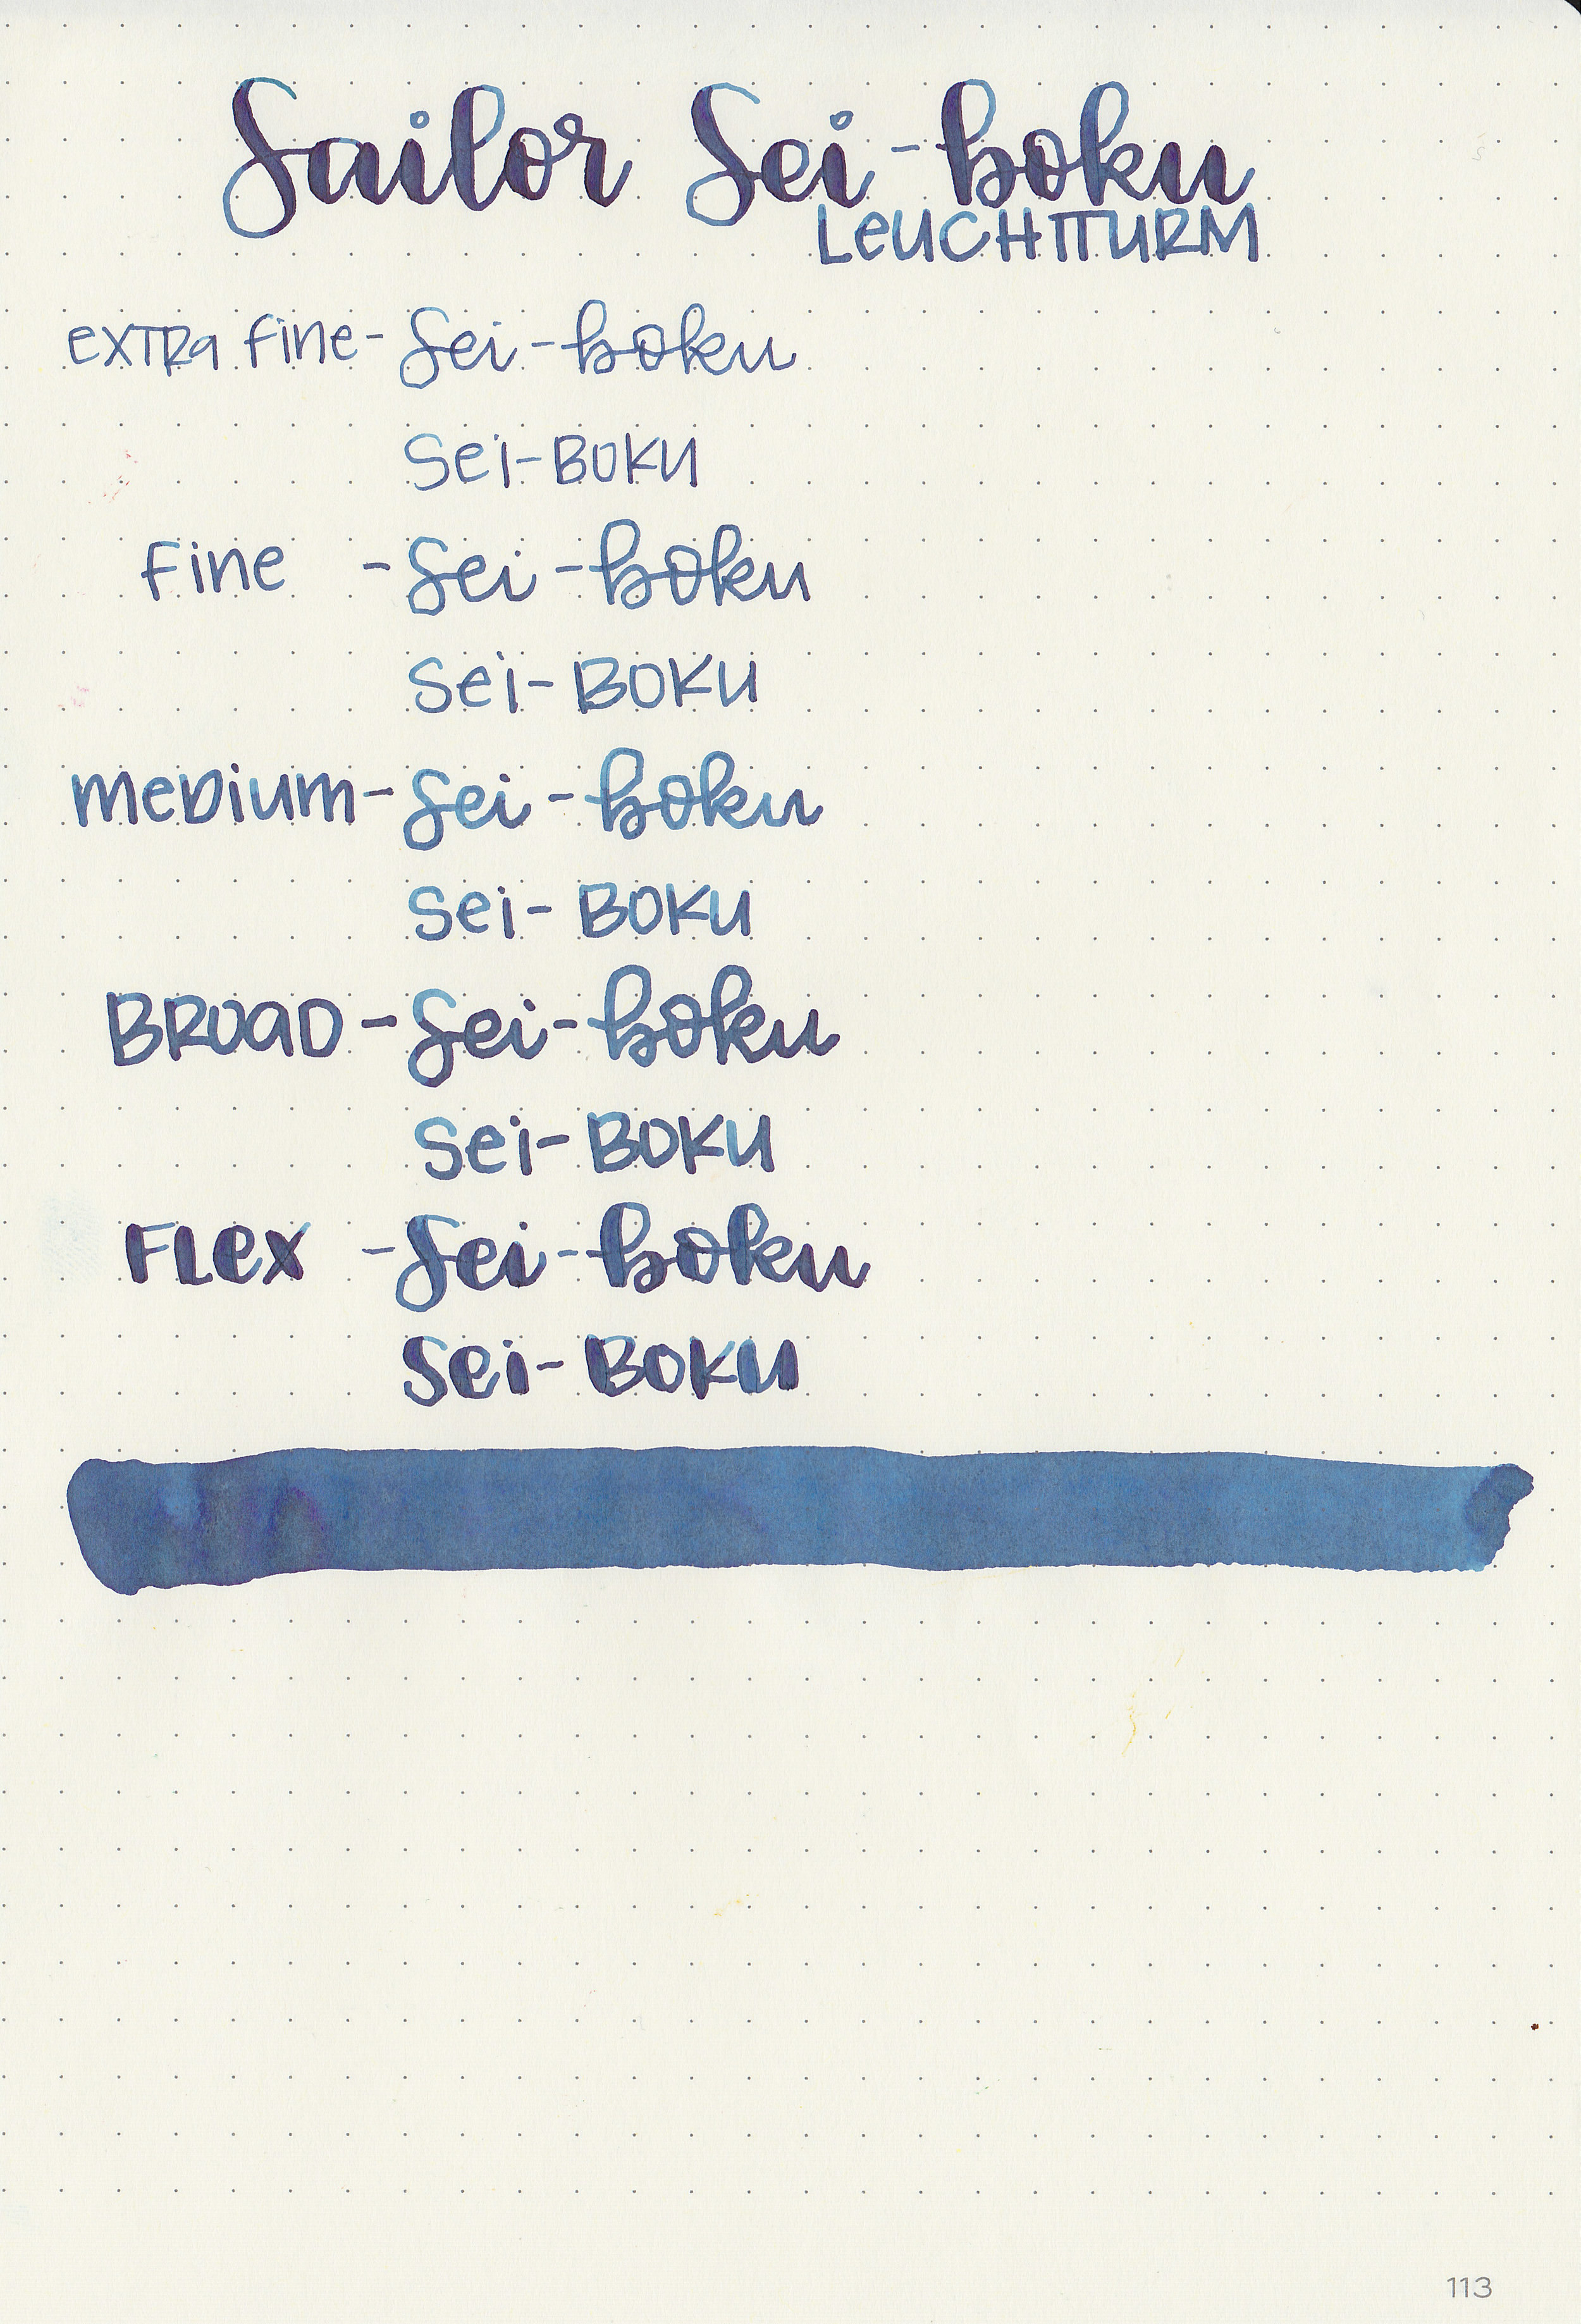 Sailor Sei-boku
LEUCHTTURM
EXTRA FINE- Sei-boku
Sei-BOKU
FINE - Sei-boku
Sei-BOKU
MEDIUM- Sei-boku
Sei-BOKU
BROAD - Sei-boku
Sei-BOKU
FLEX - Sei-boku
Sei-BOKU
113